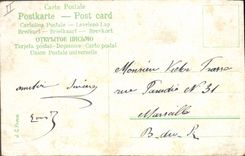 II
Carte Postale
Postkarte — Post card
Cartolina Postale — Levelező-Lap
Brefkort — Briefkaart — Brevkort
ОТКРЫТОЕ ПИСЬМО
Tarjeta postal — Dopisnice — Carta Postal
Union Postale universelle
Monsieur Victor
amitié
rue Paradis N° 31
Louis
Marseille
B-du-R